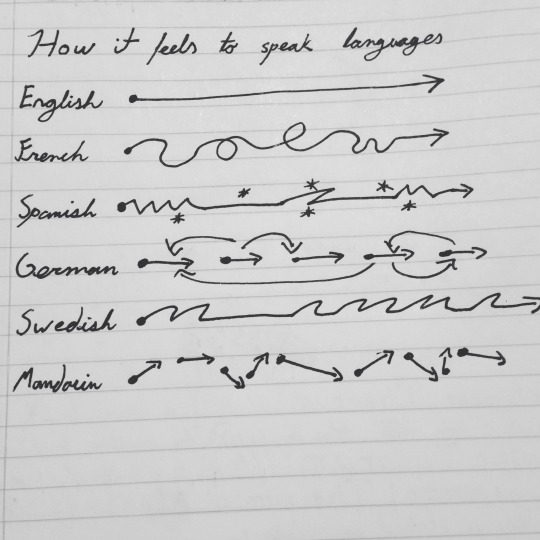 How it feels to speak languages
English
French
Spanish
German
Swedish
Mandarin